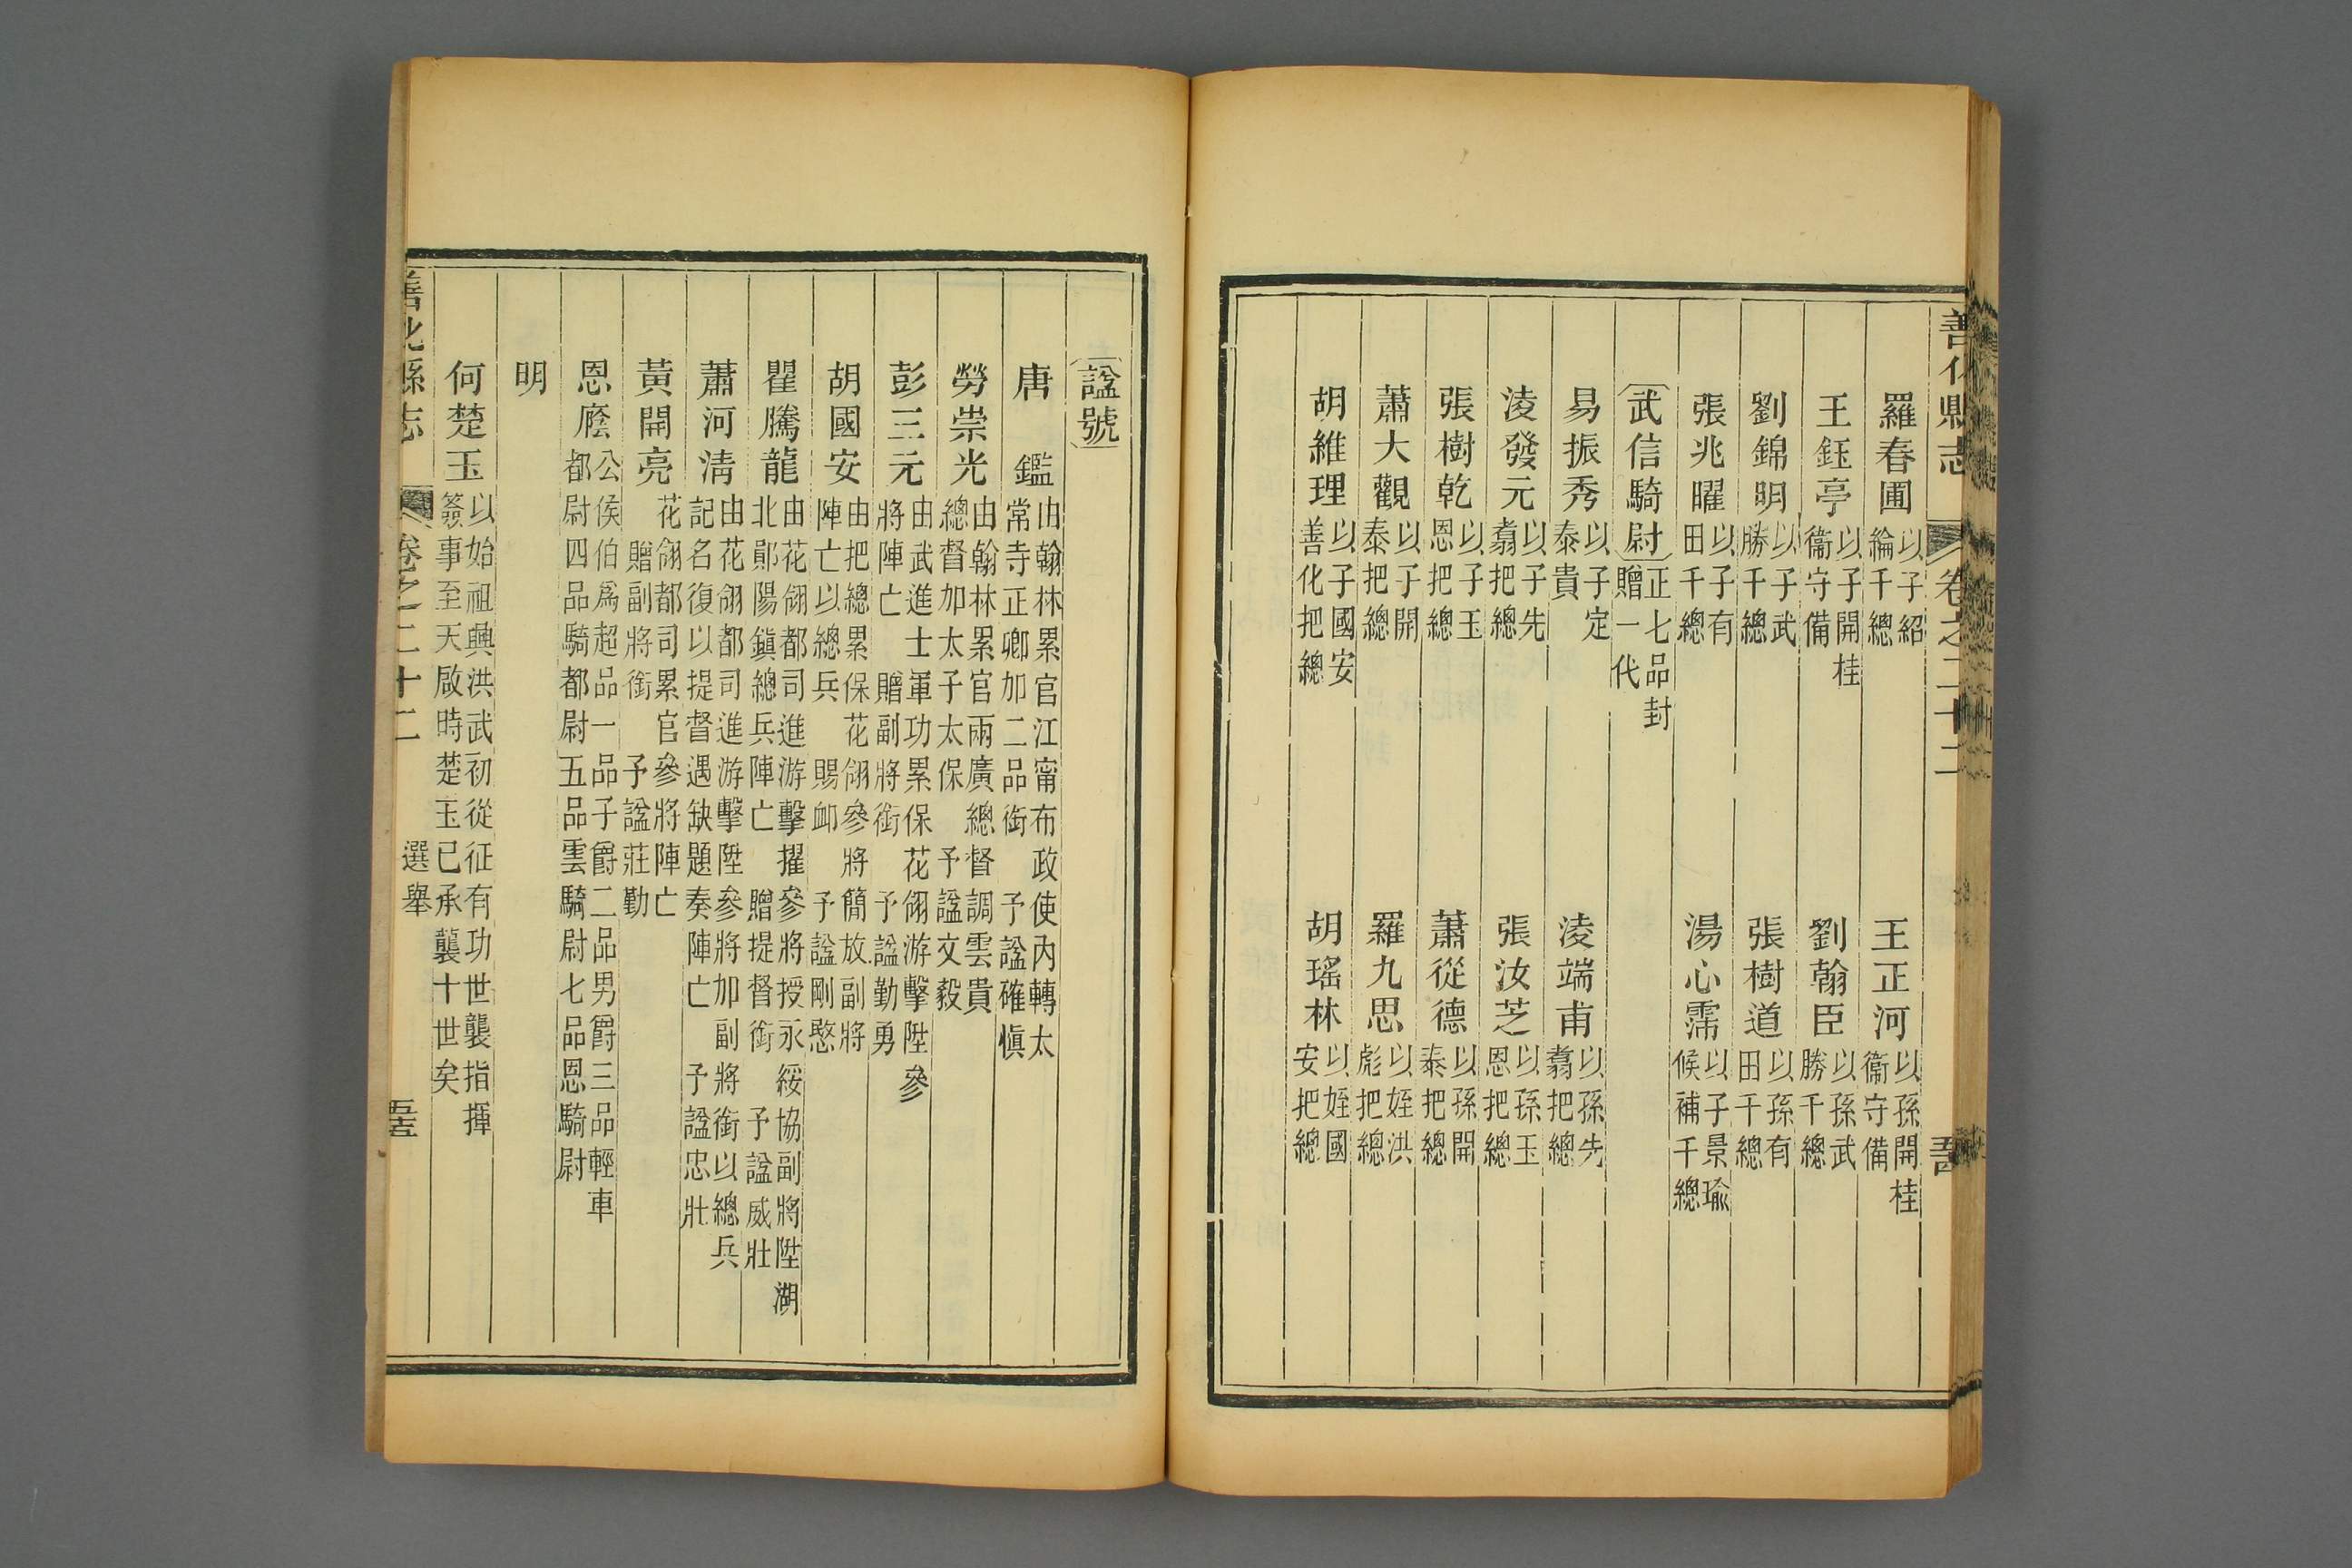 善化縣志 卷之二十二
羅春圃 以子紹綸千總 王正河 以孫開桂衞守備
王鈺亭 以子開桂衞守備 劉翰臣 以孫武勝千總
劉錦明 以子武勝千總 張樹道 以孫有田千總
張兆曜 以子有田千總 湯心霈 以子景瑜候補千總
武信騎尉 正七品封贈一代
易振秀 以子定泰貴 淩端甫 以孫先翥把總
淩發元 以子先翥把總 張汝芝 以孫玉恩把總
張樹乾 以子玉恩把總 蕭從德 以孫開泰把總
蕭大觀 以子開泰把總 羅九思 以姪洪彪把總
胡維理 以子國安善化把總 胡瑤林 以姪國安把總
諡號
唐鑑 由翰林累官江甯布政使內轉太常寺正卿加二品銜 予諡確慎
勞崇光 由翰林累官兩廣總督調雲貴總督加太子太保 予諡文毅
彭三元 由武進士軍功累保花翎游擊陞參將陣亡 贈副將銜 予諡勤勇
胡國安 由把總累保花翎參將簡放副將陣亡以總兵 賜卹 予諡剛愍
瞿騰龍 由花翎都司進游擊擢參將授永綏協副將陞湖北鄖陽鎮總兵陣亡 贈提督銜 予諡威壯
蕭河清 由花翎都司進游擊陞參將加副將銜以總兵記名復以提督遇缺題奏陣亡 予諡忠壯
黃開亮 花翎都司累官參將陣亡 贈副將銜 予諡莊勤
恩廕 公侯伯爲超品一品子爵二品男爵三品輕車都尉四品騎都尉五品雲騎尉七品恩騎尉
明
何楚玉 以始祖興洪武初從征有功世襲指揮簽事至天啟時楚玉已承襲十世矣
善化縣志 卷之二十二 選舉